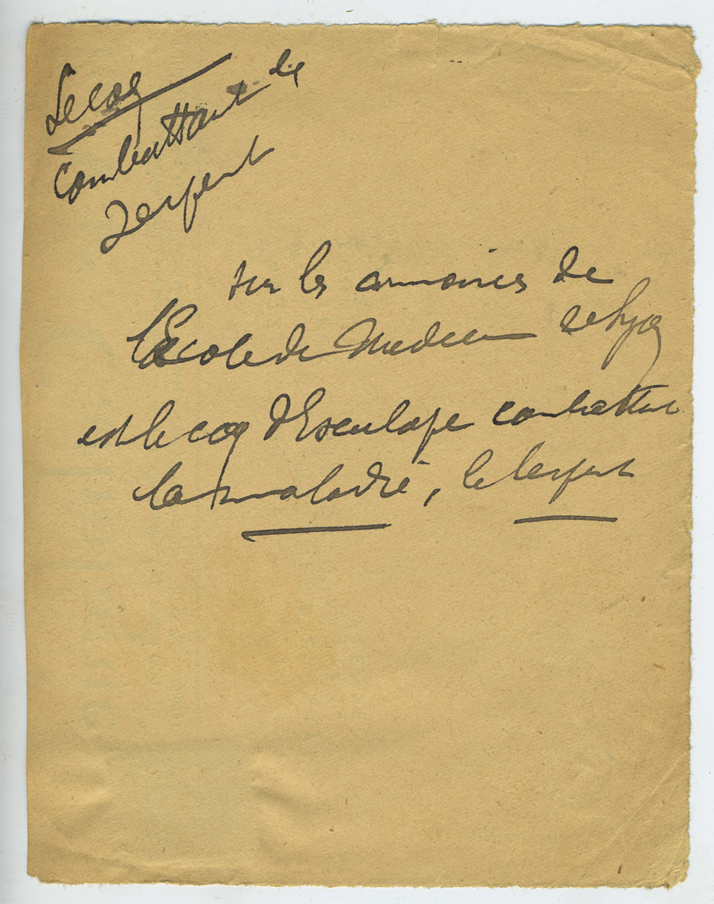 Le coq
combattant le
serpent
sur les armoiries de
l'Ecole de Medecine de Lyon
est le coq d'Esculape combattant
la maladie, le serpent